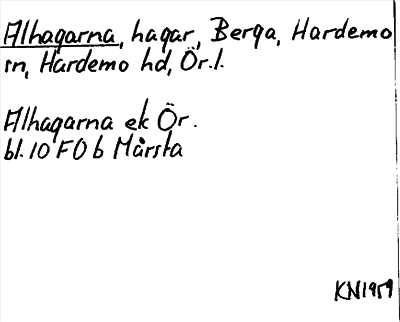 Alhagarna, hagar, Berga, Hardemo
sn, Hardemo hd, Ör.l.
Alhagarna ek Ör.
bl. 10 F0b Mårsta
KN1959